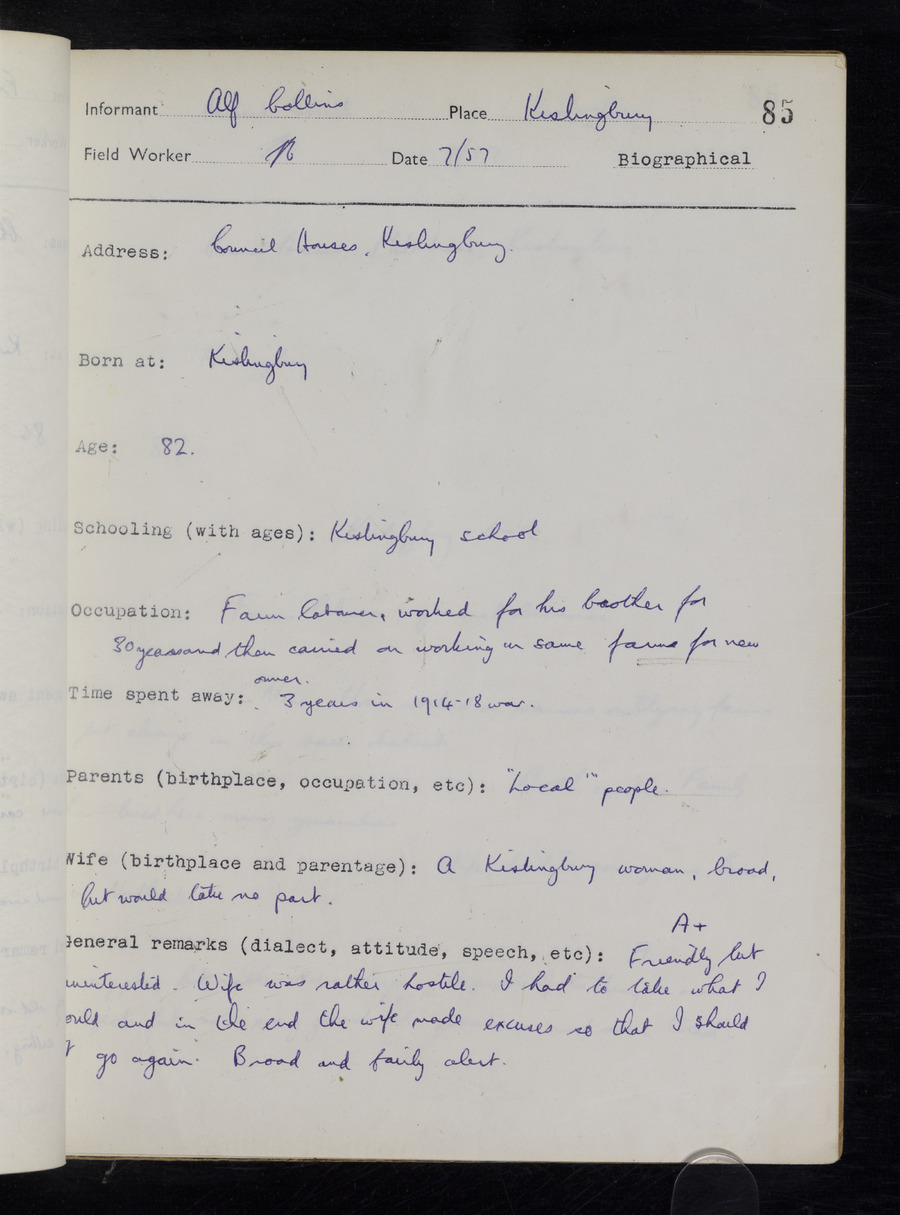 Informant Alf Collins Place Kislingbury 85
Field Worker Date 7/57 Biographical
Address: Council Houses, Kislingbury.
Born at: Kislingbury
Age: 82.
Schooling (with ages): Kislingbury school
Occupation: Farm labourer, worked for his brother for
30 years and then carried on working on same farms for new
owner.
Time spent away: 3 years in 1914-18 war.
Parents (birthplace, occupation, etc): "Local" people.
Wife (birthplace and parentage): A Kislingbury woman, broad,
but would take no part.
A+
General remarks (dialect, attitude, speech, etc): Friendly but
uninterested. Wife was rather hostile. I had to take what I
could and in the end the wife made excuses so that I should
go again. Broad and fairly alert.